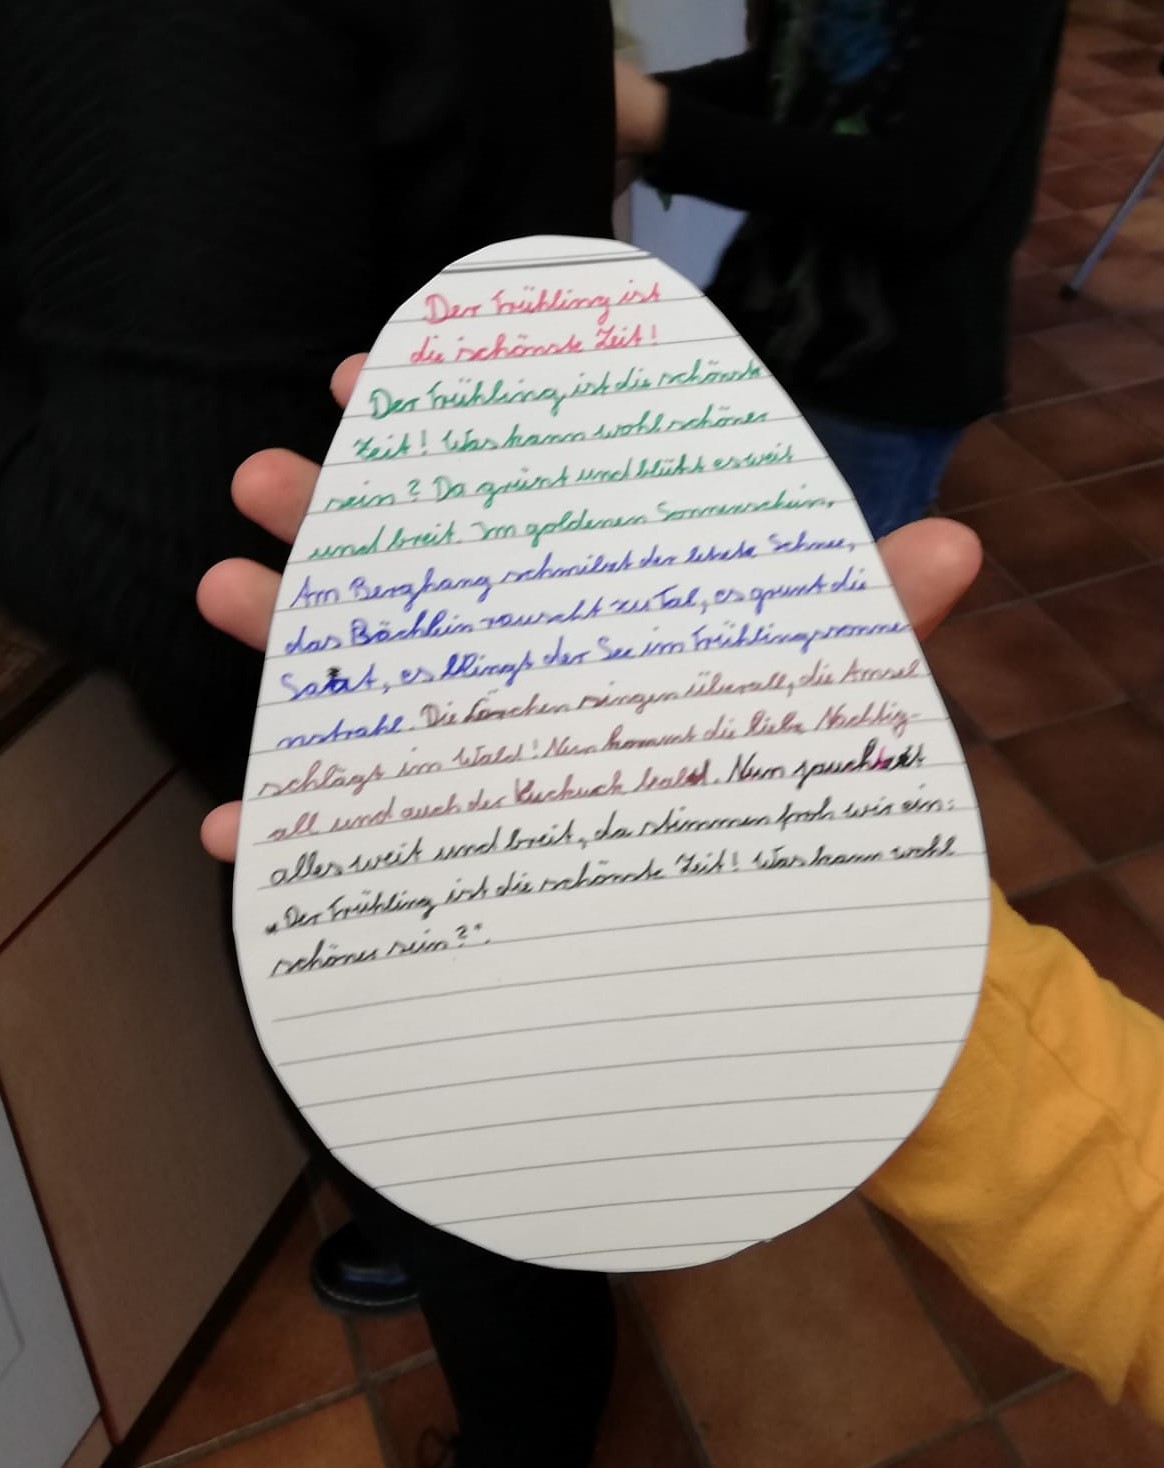 Der Frühling ist
die schönste Zeit!
Der Frühling ist die schönste
Zeit! Was kann wohl schöner
sein? Da grünt und blüht es weit
und breit. Im goldenen Sonnenschein.
Am Berghang schmilzt der letzte Schnee,
das Bächlein rauscht zu Tal, es grünt die
Saat, es blingt der See im Frühlingssonne
nstrahl. Die Lerchen singen überall, die Amsel
schlägt im Wald! Nun kommt die liebe Nachtig-
all und auch der Kuckuck bald. Nun jauchzet
alles weit und breit, da stimmen froh wir ein:
„Der Frühling ist die schönste Zeit! Was kann wohl
schöner sein?".